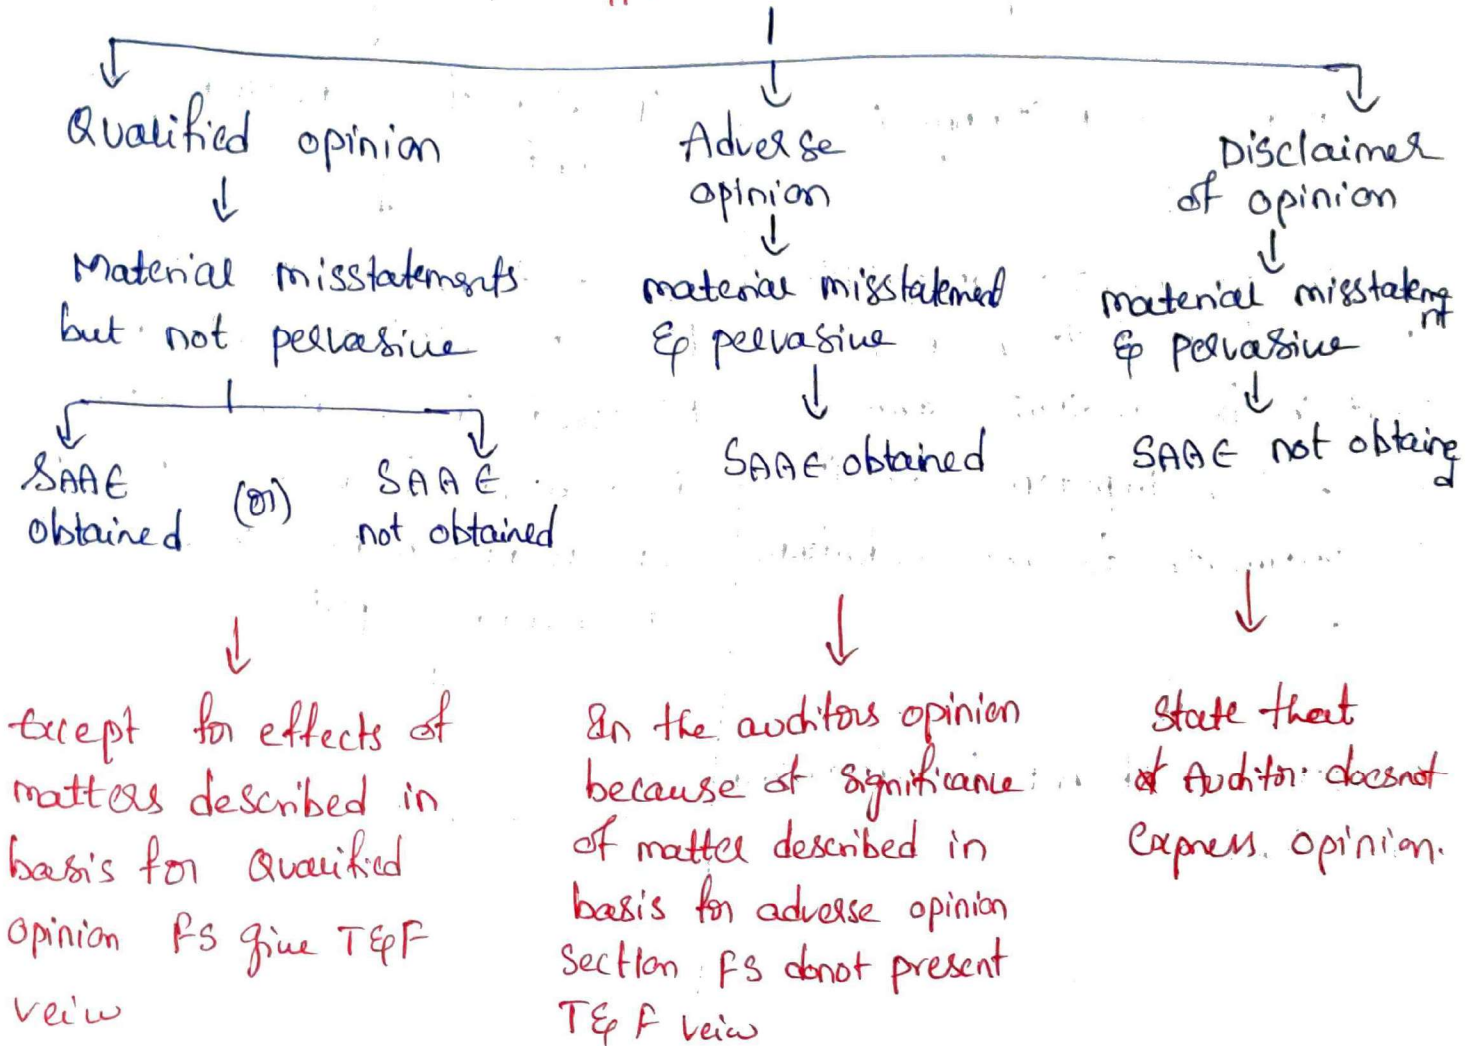 Qualified opinion
↓
Material misstatements
but not pervasive
SAAE
obtained
(or)
SAAE
not obtained
↓
Except for effects of
matters described in
basis for Qualified
opinion FS give T&F
veiw
Adverse
opinion
↓
material misstatement
& pervasive
↓
SAAE obtained
↓
In the auditors opinion
because of significance
of matter described in
basis for adverse opinion
Section FS donot present
T & F veiw
Disclaimer
of opinion
↓
material misstatement
& pervasive
↓
SAAE not obtained
↓
State that
Auditor doesnot
express opinion.